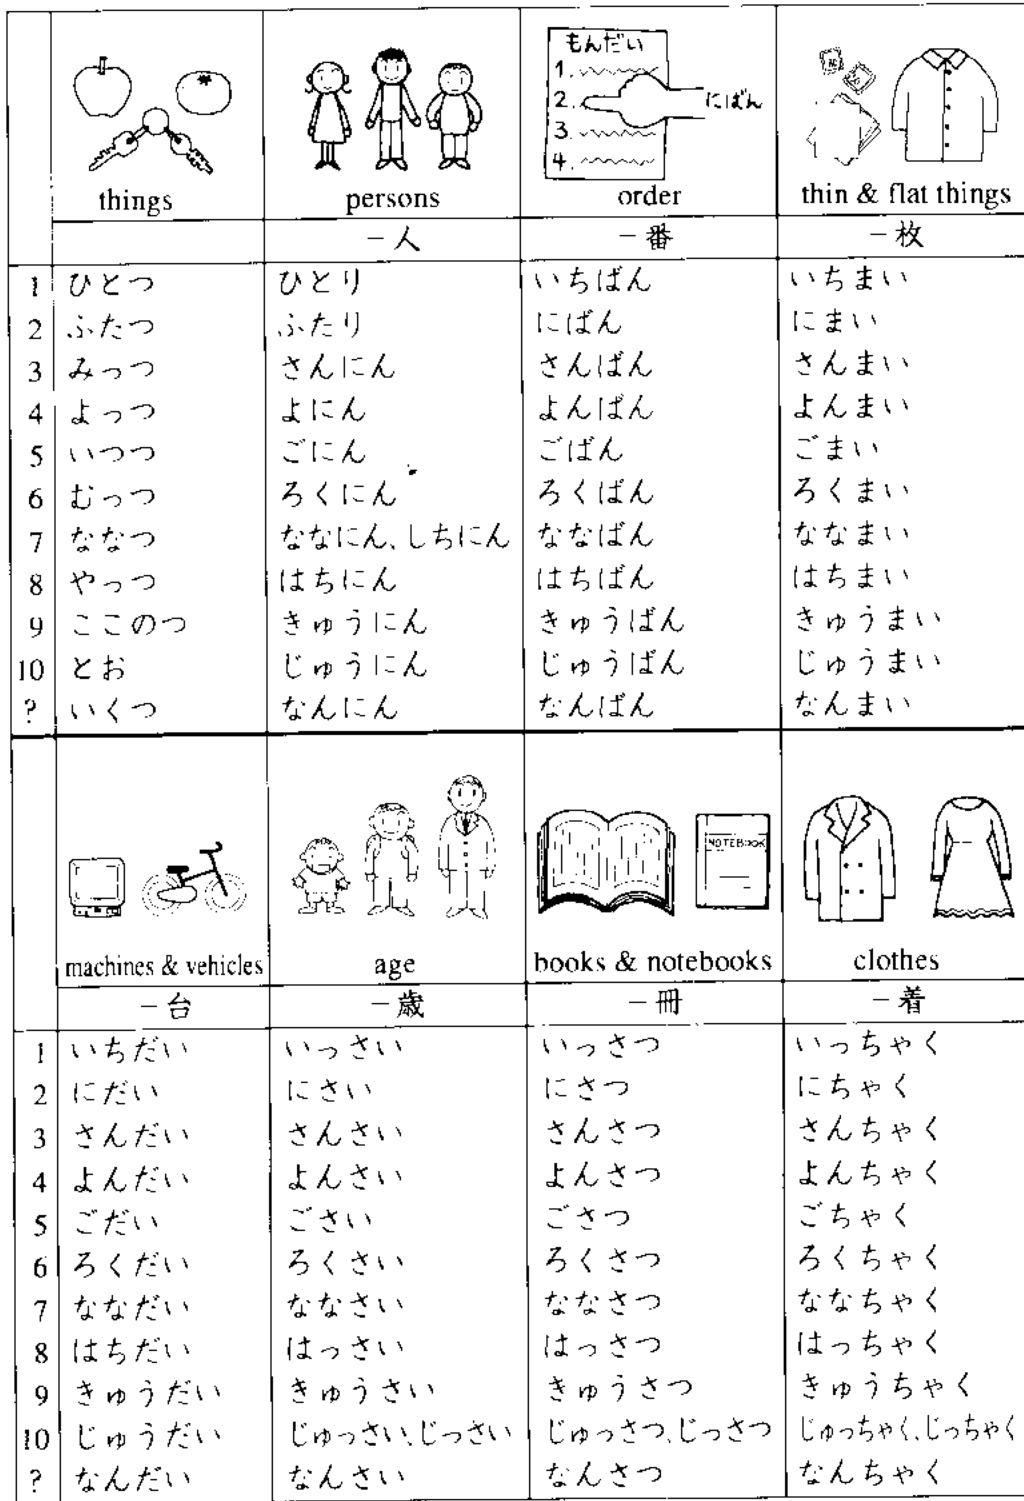 もんだい
1.
2.
3.
4.
にばん
NOTEBOOK
things persons order thin & flat things
－人 －番 －枚
1 ひとつ ひとり いちばん いちまい
2 ふたつ ふたり にばん にまい
3 みっつ さんにん さんばん さんまい
4 よっつ よにん よんばん よんまい
5 いつつ ごにん ごばん ごまい
6 むっつ ろくにん ろくばん ろくまい
7 ななつ ななにん、しちにん ななばん ななまい
8 やっつ はちにん はちばん はちまい
9 ここのつ きゅうにん きゅうばん きゅうまい
10 とお じゅうにん じゅうばん じゅうまい
? いくつ なんにん なんばん なんまい
machines & vehicles age books & notebooks clothes
－台 －歳 －冊 －着
1 いちだい いっさい いっさつ いっちゃく
2 にだい にさい にさつ にちゃく
3 さんだい さんさい さんさつ さんちゃく
4 よんだい よんさい よんさつ よんちゃく
5 ごだい ごさい ごさつ ごちゃく
6 ろくだい ろくさい ろくさつ ろくちゃく
7 ななだい ななさい ななさつ ななちゃく
8 はちだい はっさい はっさつ はっちゃく
9 きゅうだい きゅうさい きゅうさつ きゅうちゃく
10 じゅうだい じゅっさい、じっさい じゅっさつ、じっさつ じゅっちゃく、じっちゃく
? なんだい なんさい なんさつ なんちゃく